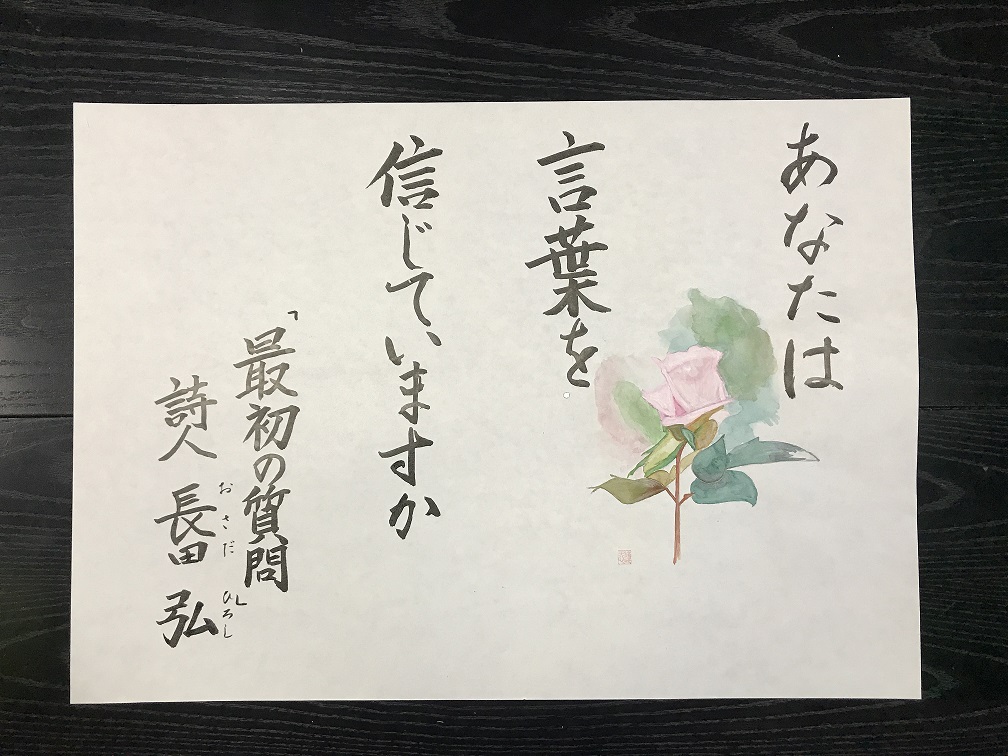 あなたは
言葉を
信じていますか
「最初の質問
詩人 長田 弘
おさだ ひろし